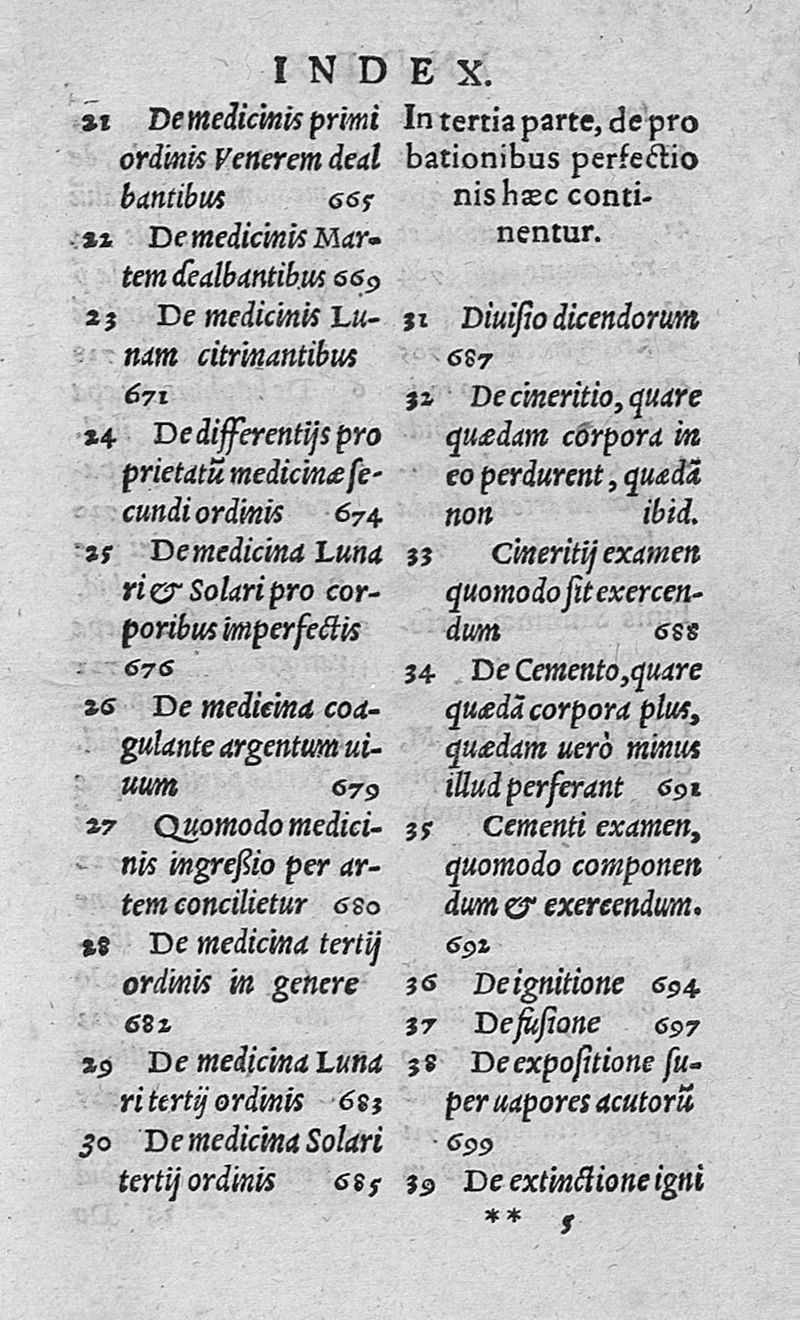 INDEX.
21 De medicinis primi
ordinis Venerem deal
bantibus 665
22 De medicinis Mar-
tem dealbantibus 669
23 De medicinis Lu-
nam citrinantibus
671
24 De differentijs pro
prietatū medicinæ ſe-
cundi ordinis 674
25 De medicina Luna
ri & Solari pro cor-
poribus imperfectis
676
26 De medicina coa-
gulante argentum ui-
uum 679
27 Quomodo medici-
nis ingreßio per ar-
tem concilietur 680
28 De medicina tertij
ordinis in genere
682
29 De medicina Luna
ri tertij ordinis 683
30 De medicina Solari
tertij ordinis 685
In tertia parte, de pro
bationibus perfectio
nis hæc conti-
nentur.
31 Diuiſio dicendorum
687
32 De cineritio, quare
quædam corpora in
eo perdurent, quædā
non ibid.
33 Cineritij examen
quomodo ſit exercen-
dum 688
34 De Cemento, quare
quædā corpora plus,
quædam uerò minus
illud perferant 691
35 Cementi examen,
quomodo componen
dum & exercendum.
692
36 De ignitione 694
37 De fuſione 697
38 De expoſitione ſu-
per uapores acutorū
699
39 De extinctione igni
** 5